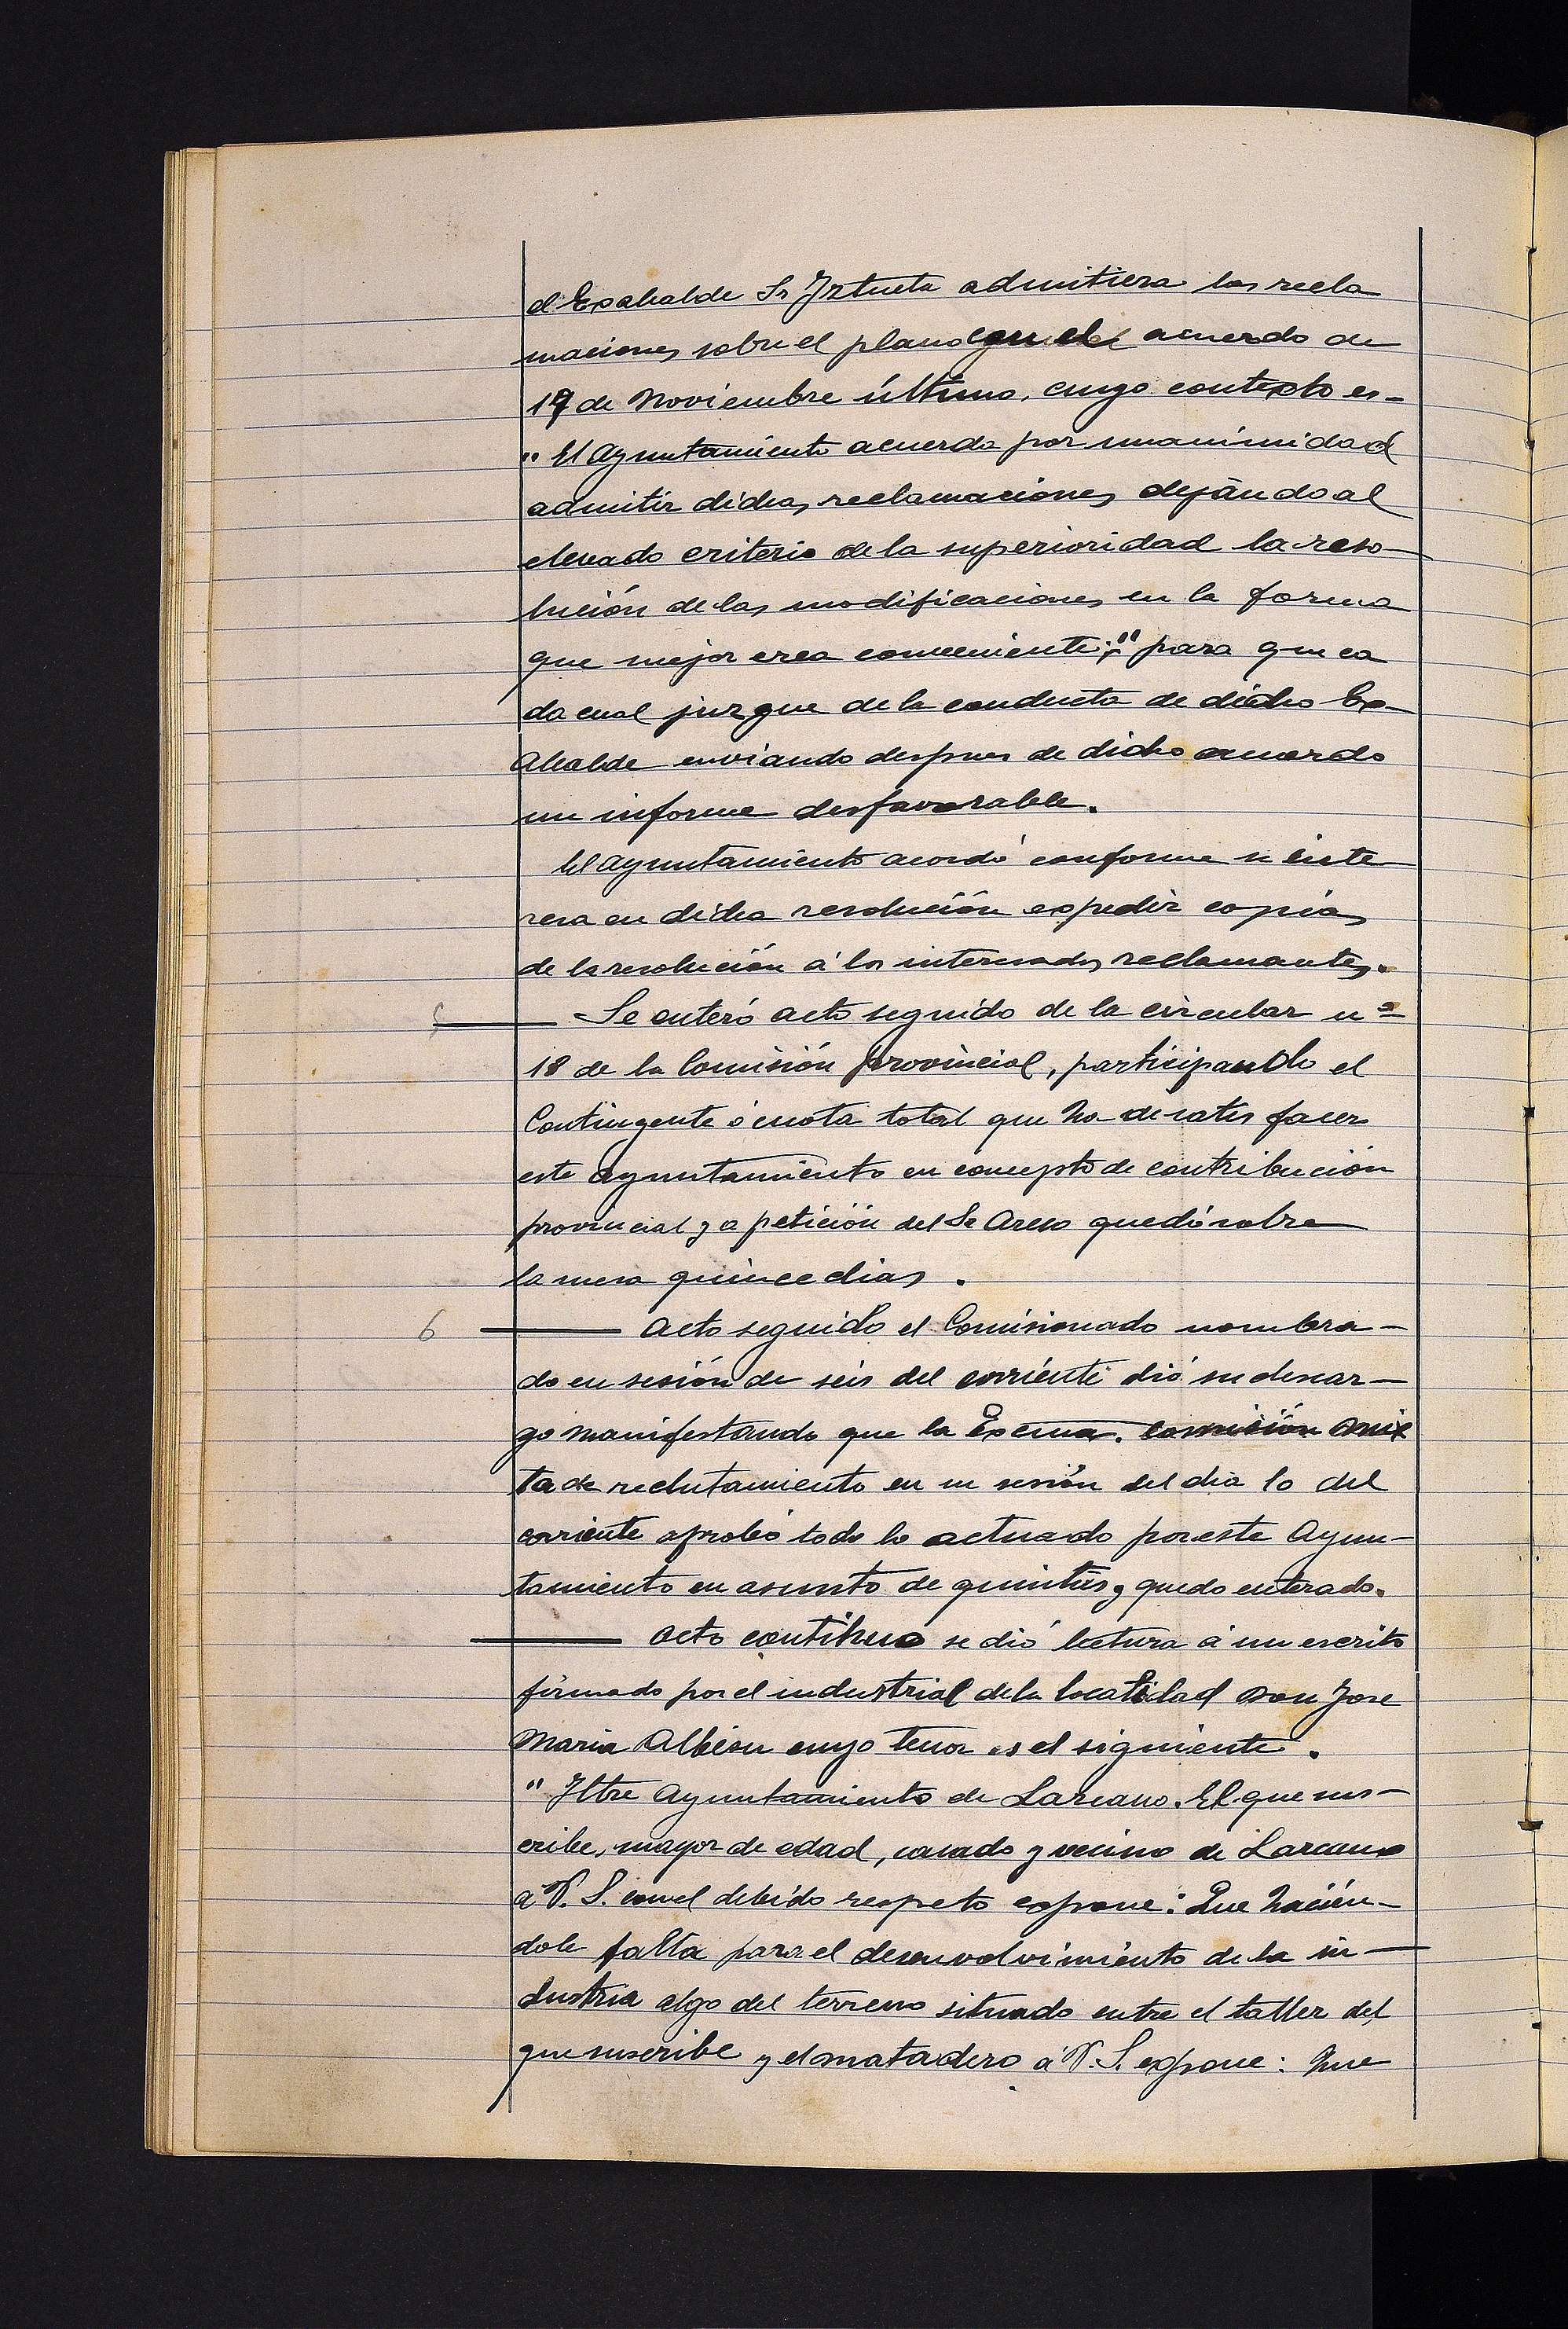 el Exalcalde Sr Iztueta admitiera las recla
maciones sobre el plano con el acuerdo de
19 de Noviembre último, cuyo contexto es-
"El Ayuntamiento acuerda por unanimidad
admitir dichas reclamaciones dejando al
elevado criterio de la superioridad la reso-
lución de las modificaciones en la forma
que mejor crea conveniente;" para que ca
da cual juzgue de la conducta de dicho Ex-
Alcalde enviando despues de dicho acuerdo
un informe desfavorable.
El ayuntamiento acordó conforme se inte
resa en dicha resolución expedir copias
de la resolución á los interesados reclamantes.
Se enteró acto seguido de la circular nº
18 de la Comisión provincial, participando el
Contingente ó cuota total que ha de satis facer
este ayuntamiento en concepto de contribución
provincial y a petición del Sr Areso quedó sobre
la mesa quince dias.
6 Acto seguido el Comisionado nombra-
do en sesión de seis del corriente dió su descar-
go manifestando que la Excma. comisión mix
ta de reclutamiento en su sesión del dia 10 del
corriente aprobó todo lo actuado por este Ayun-
tamiento en asunto de quintas y quedo enterado.
Acto continuo se dió lectura á un escrito
firmado por el industrial de la localidad Don Jose
Maria Albisu cuyo tenor es el siguiente.
"Iltre Ayuntamiento de Lazcano. El que sus-
cribe, mayor de edad, casado y vecino de Lazcano
a V. S. con el debido respeto expone: Que hacién-
dole falta para el desenvolvimiento de la in-
dustria algo del terreno situado entre el taller del
que suscribe y el matadero á V. S. expone: Que